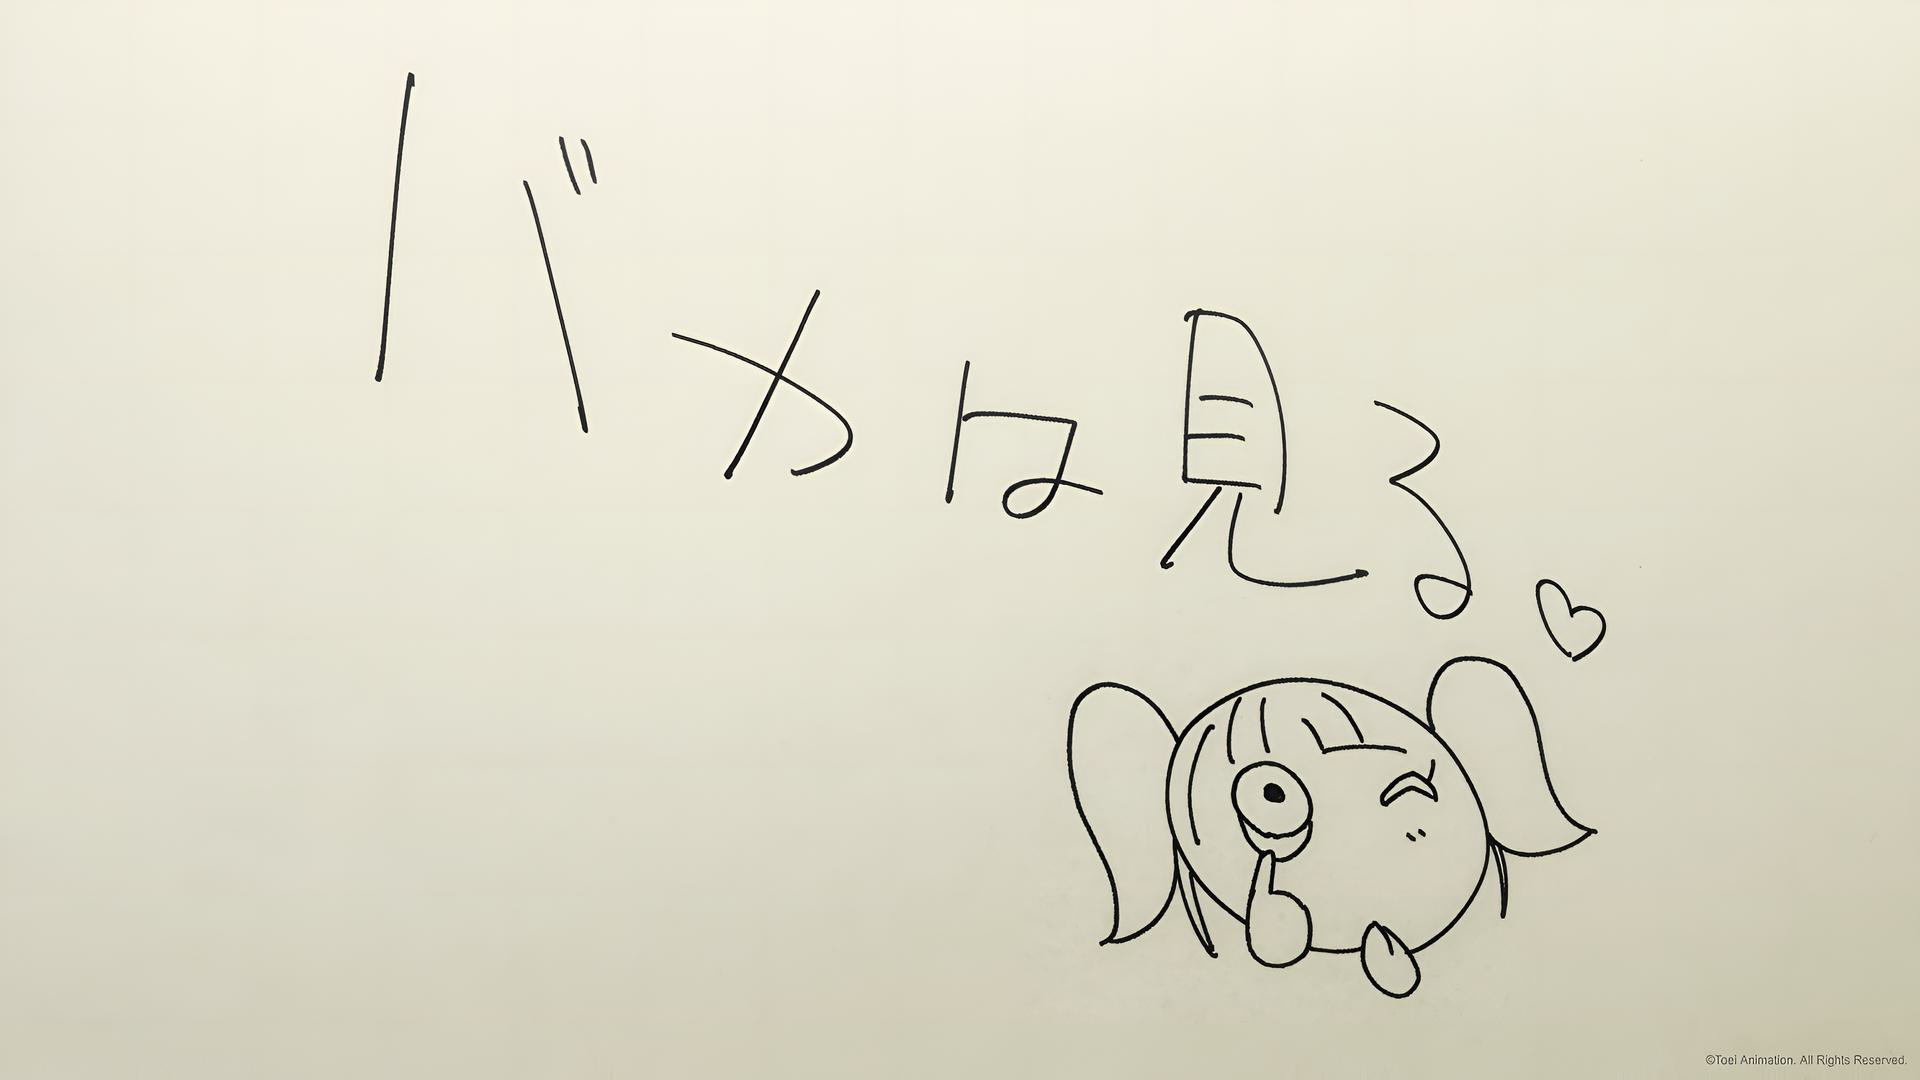 バカは見る♡
©Toei Animation. All Rights Reserved.